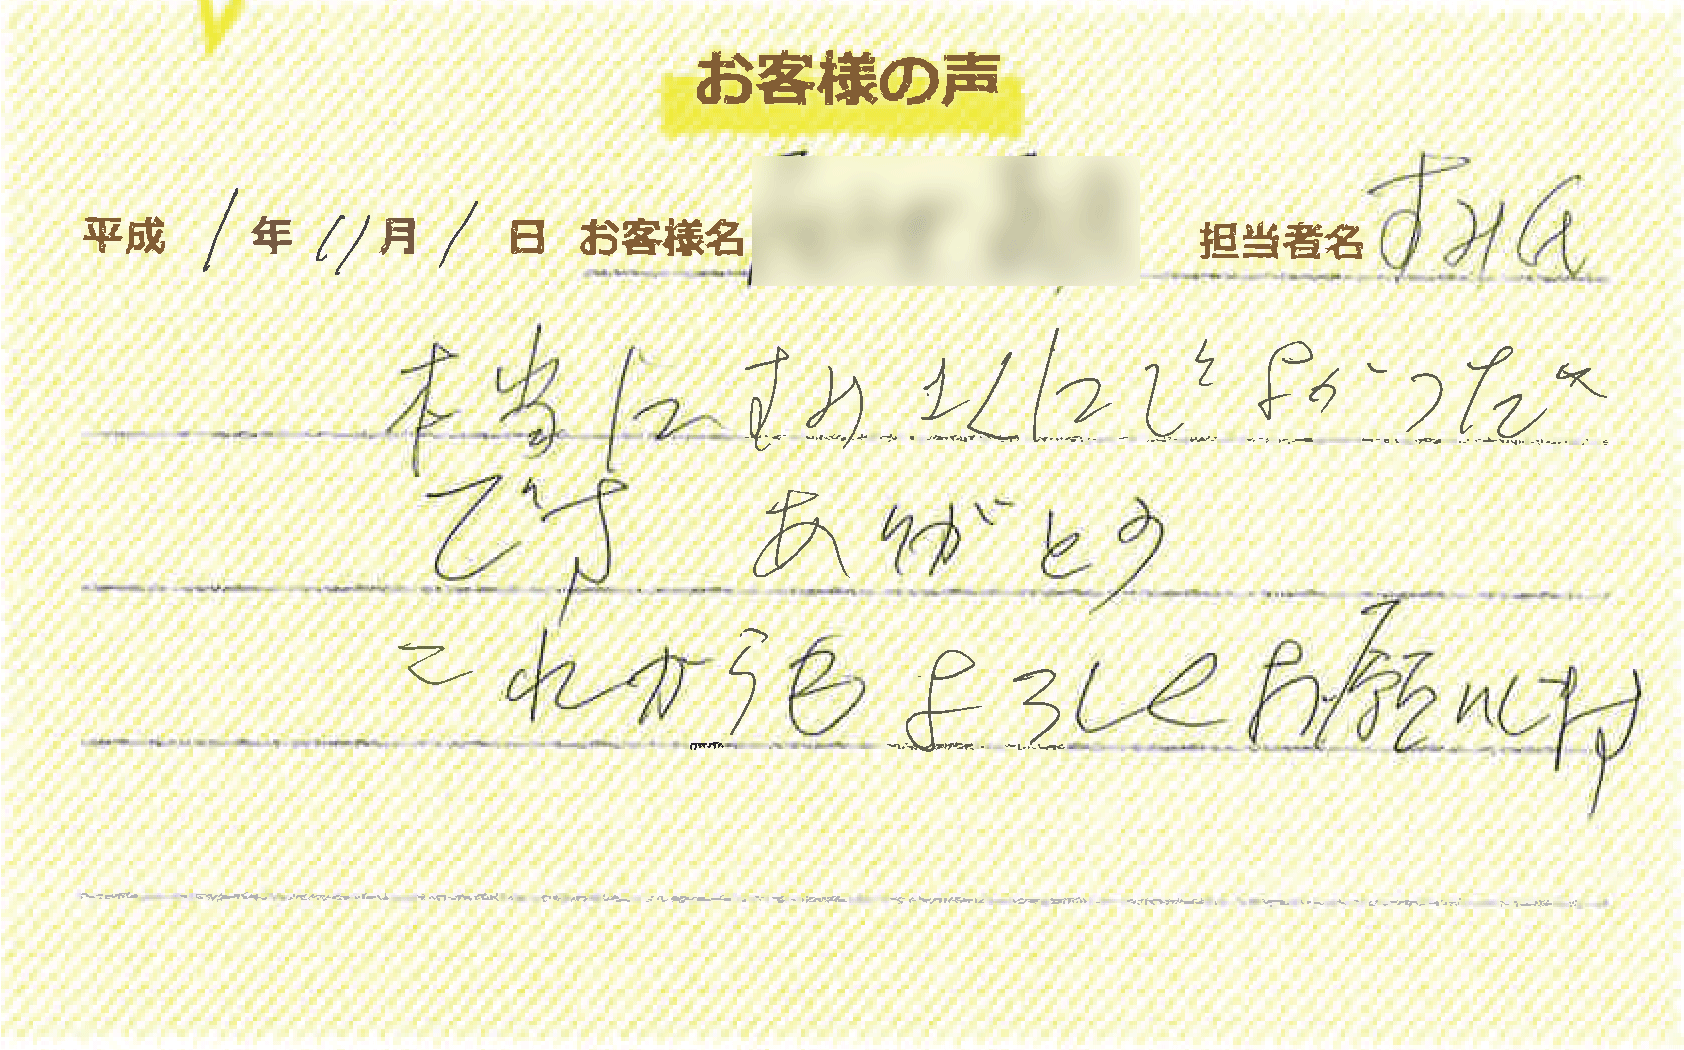 お客様の声
平成 1年 11月 1日 お客様名 担当者名 すみな
本当にすみよくにてよかった
です ありがとう
これからもよろしくお願いします